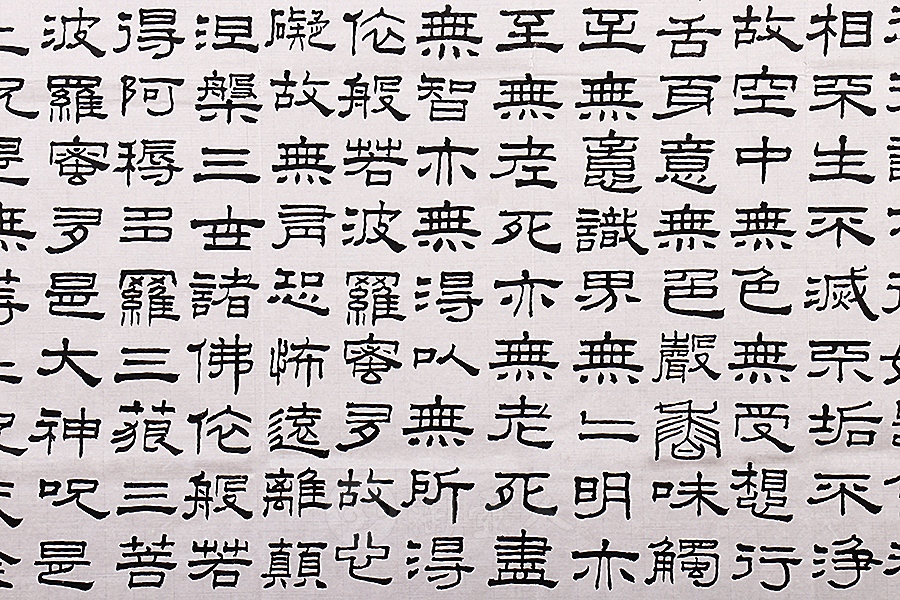 相不生不滅不垢不淨
故空中無色無受想行
舌身意無色聲香味觸
至無意識界無二明亦
至無老死亦無老死盡
無智亦無得以無所得
依般若波羅蜜多故心
礙故無有恐怖遠離顛
涅槃三世諸佛依般若
得阿耨多羅三藐三菩
波羅蜜多是大神呪是